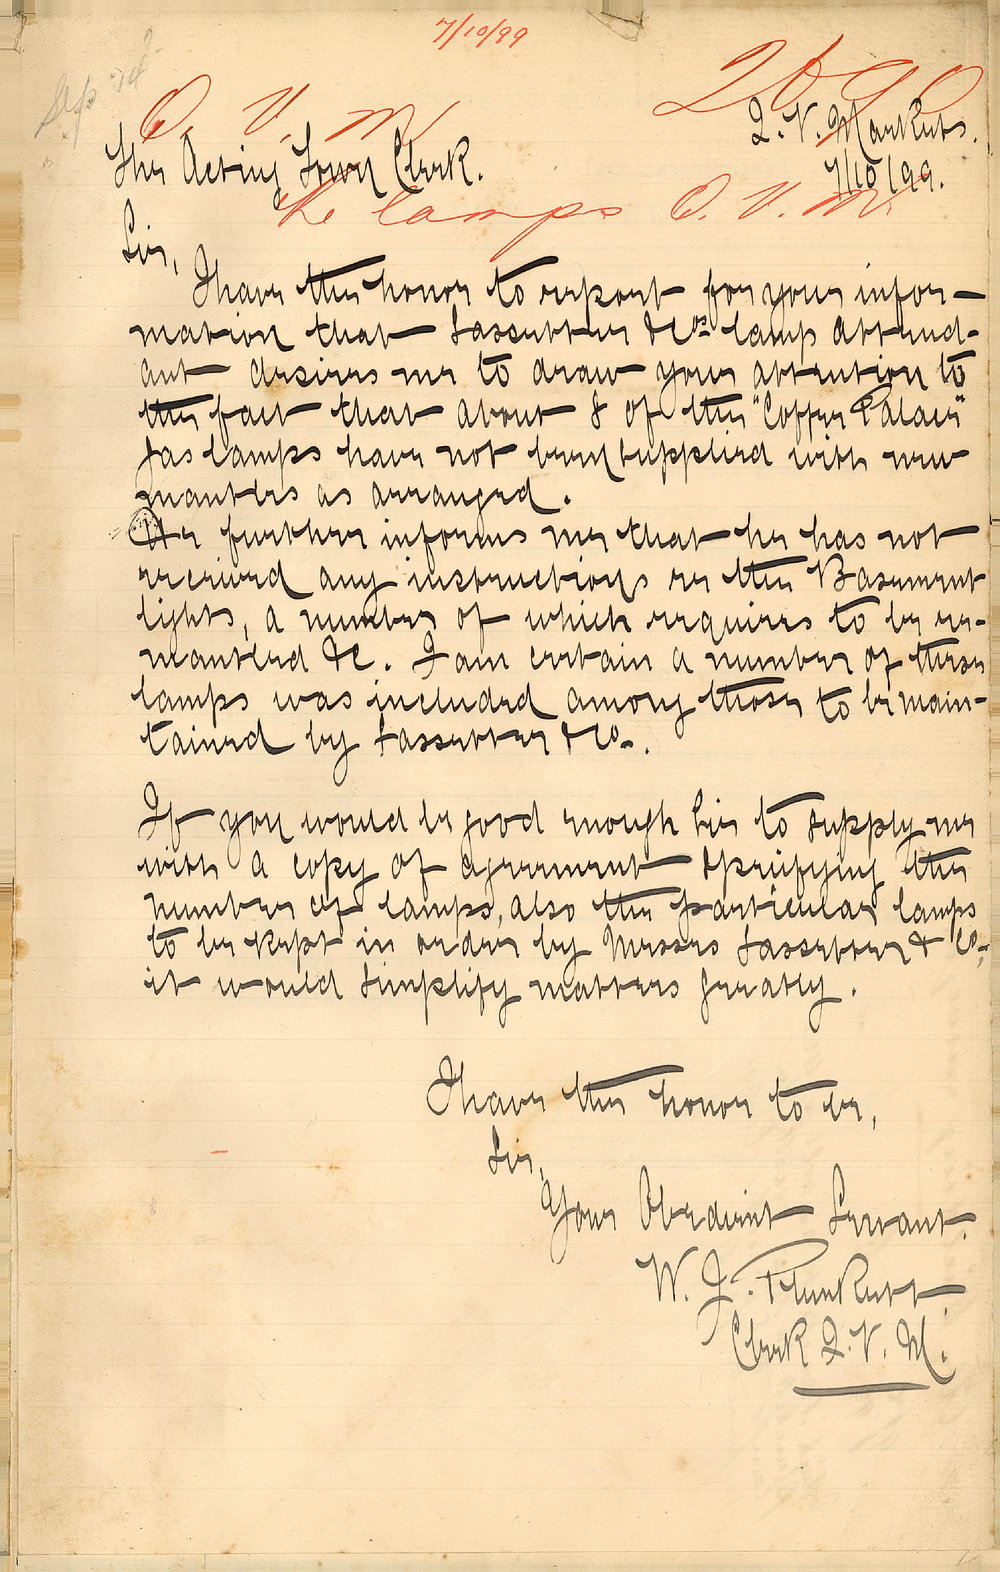 7/10/99
Sep 74
2690
Q. V. M
Q. V. Markets.
The Acting Town Clerk.
7/10/99.
re lamps Q. V. M.
Sir,
I have the honor to report for your infor-
mation that Lassetter & Cos. lamp attend-
ant desires me to draw your attention to
the fact that about 8 of the "Coffee Palace"
Gas lamps have not been supplied with new
mantles as arranged.
He further informs me that he has not
received any instructions re the Basement
lights, a number of which requires to be re-
mantled &c. I am certain a number of these
lamps was included among those to be main-
tained by Lassetter & Co.
If you would be good enough Sir to supply me
with a copy of agreement specifying the
number of lamps, also the particular lamps
to be kept in order by Messrs Lassetter & Co.,
it would simplify matters greatly.
I have the honor to be,
Sir,
Your Obedient Servant.
W. J. Plunkett.
Clerk Q. V. M.